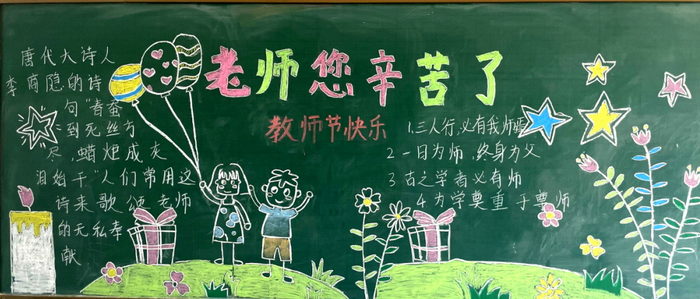 老师您辛苦了
教师节快乐
唐代大诗人
李商隐的诗
句"春蚕
到死丝方
尽,蜡炬成灰
泪始干"人们常用这
诗来歌颂老师
的无私奉
献
1.三人行,必有我师焉
2一日为师,终身为父
3古之学者必有师
4为学莫重于尊师